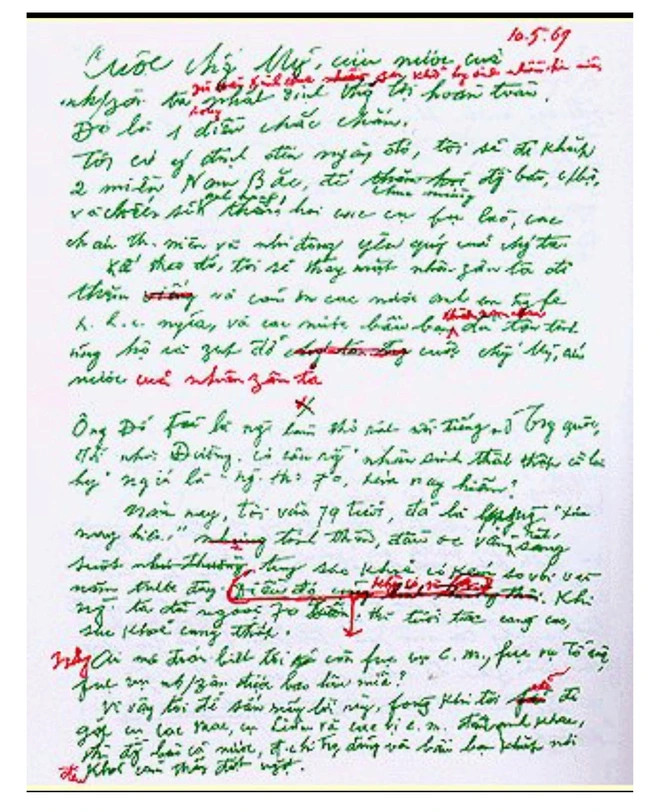 10.5.69
Cuộc chống Mỹ, cứu nước của
dù phải kinh qua khó hy sinh nhiều hơn nữa,
nh/zân ta, nhất định thắng lợi hoàn toàn.
Đó là 1 điều chắc chắn.
Tôi có ý định đến ngày đó, tôi sẽ đi khắp
2 miền Nam Bắc, để chúc mừng đg bào, c/bộ,
và chiến sĩ thăm hỏi các cụ fụ lão, các
cháu th. niên và nhi đồng yêu quý của chúng ta.
Kế theo đó, tôi sẽ thay mặt nhân zân ta đi
thăm và cám ơn các nước anh em trg fe
x. h. c. nghĩa, và các nước bầu bạn đã tận tình
ủng hộ và zúp đỡ cuộc chống Mỹ, cứu
nước của nhân zân ta
X
Ông Đỗ Fủ là người làm thơ rất nổi tiếng ở Trg quốc,
đời nhà Đường. Có câu rằng "nhân sinh thất thập cổ lai
hy" nghĩa là "ng. thọ 70, xưa nay hiếm".
Năm nay, tôi vừa 79 tuổi, đã là "xưa
nay hiếm" tinh thần, đầu óc vẫn rất sáng
suốt sức khoẻ có kém so với vài
năm trước đây. Khi
ng. ta đã ngoài 70 xuân, thì tuổi tác càng cao,
sức khoẻ càng thấp.
Nhưng Ai mà đoán biết tôi còn fục vụ c.m., fục vụ Tổ quốc,
fục vụ nh/zân được bao lâu nữa?
Vì vậy tôi để sẵn mấy lời này, fòng khi tôi sẽ đi
gặp cụ Các Mác, cụ Lênin và các vị c.m. đàn anh khác,
thì đg bào cả nước, đ.chí trg đảng và bầu bạn khắp nơi
đều khỏi cảm thấy đột ngột.